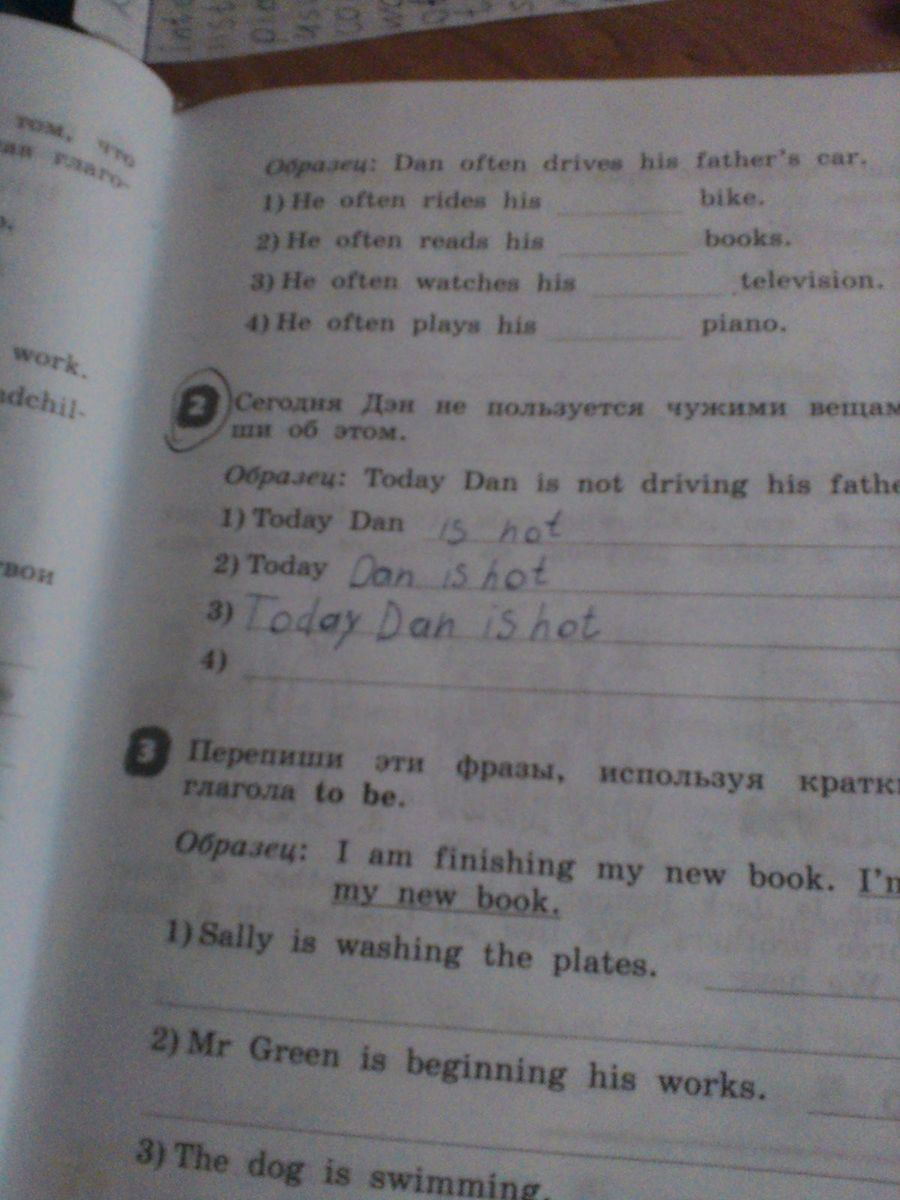 том, что
глаго-
work.
ndchil-
Образец: Dan often drives his father's car.
1) He often rides his ________ bike.
2) He often reads his ________ books.
3) He often watches his ________ television.
4) He often plays his ________ piano.
2 Сегодня Дэн не пользуется чужими вещам
ши об этом.
Образец: Today Dan is not driving his fathe
1) Today Dan is not
2) Today Dan is not
3) Today Dan is not
4)
3 Перепиши эти фразы, используя кратк
глагола to be.
Образец: I am finishing my new book. I'm
my new book.
1) Sally is washing the plates.
2) Mr Green is beginning his works.
3) The dog is swimming.